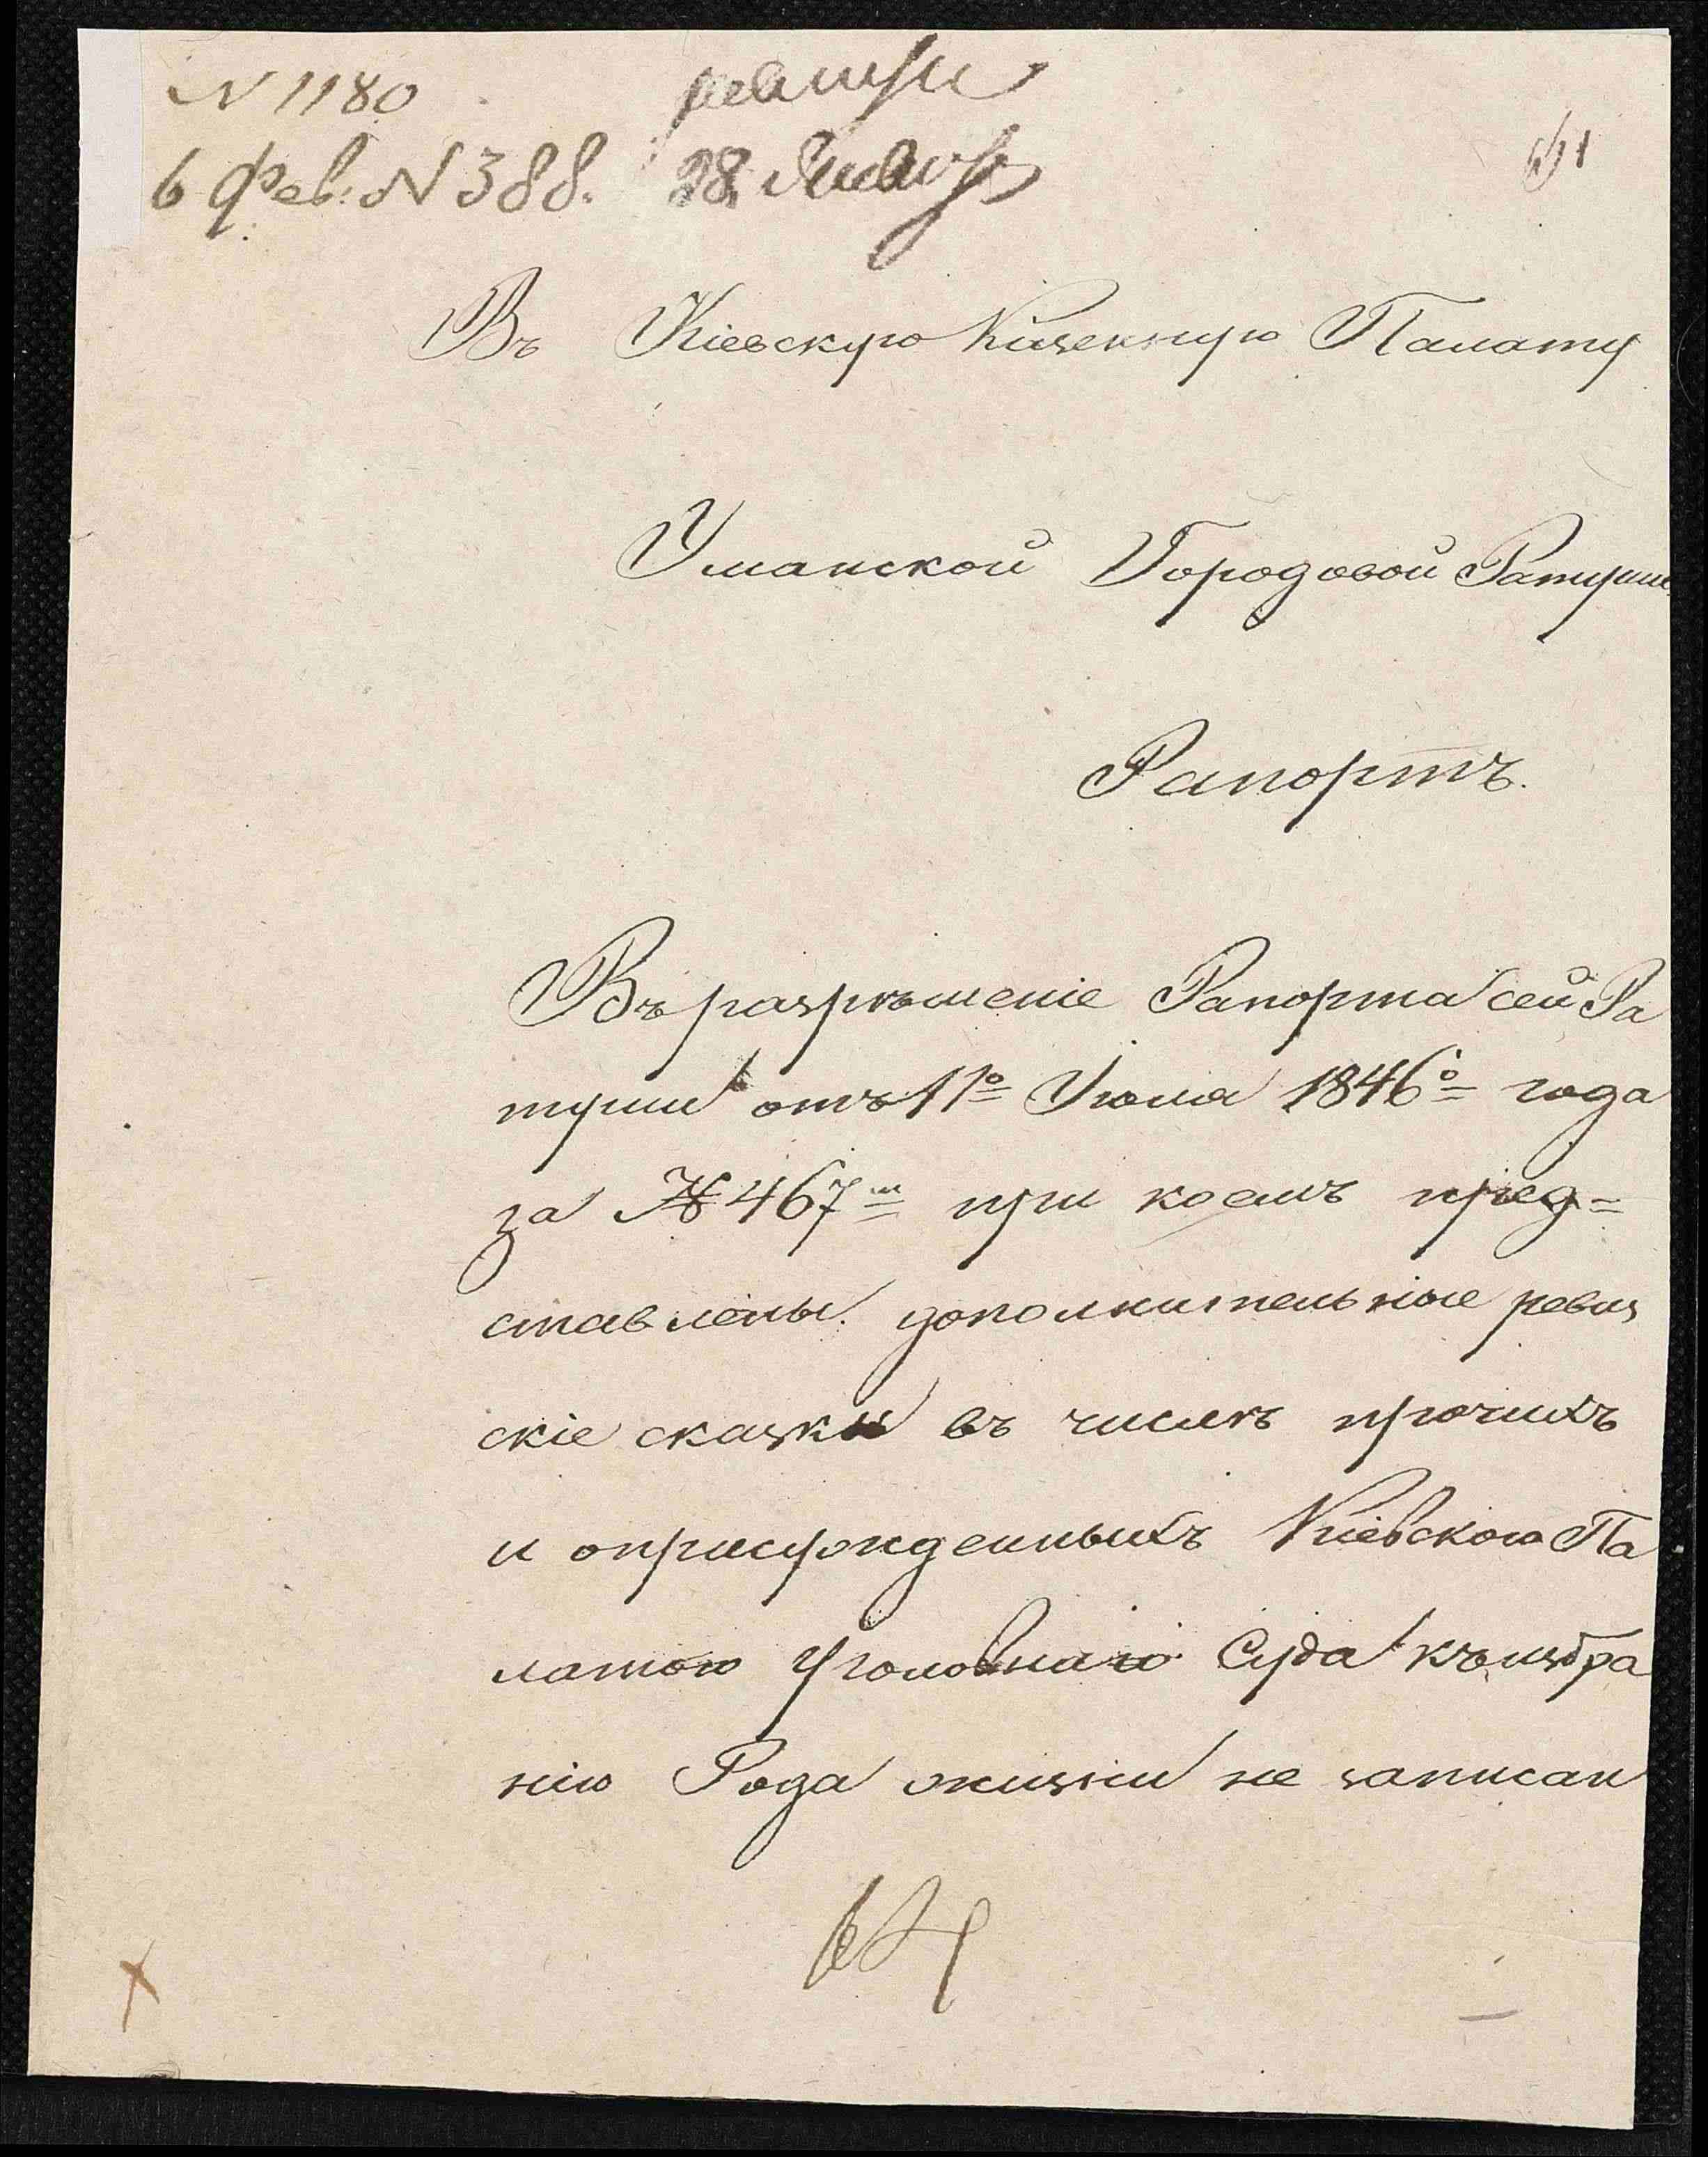 N 1180
ревизи
6 Фев: N 388.
28 Января
61
Въ Кіевскую Казенную Палату
Уманской Городовой Ратуши
Рапортъ.
Въ разрѣшеніе Рапорта сей Ра
туши отъ 11º Іюля 1846º года
за № 467ᵐ при коемъ пред=
ставлены дополнительные ревиз
скіе сказки въ числѣ прочихъ
и оприсужденныхъ Кіевскою Па
латою Уголовнаго Суда къ избра
нію Рода жизни не записан